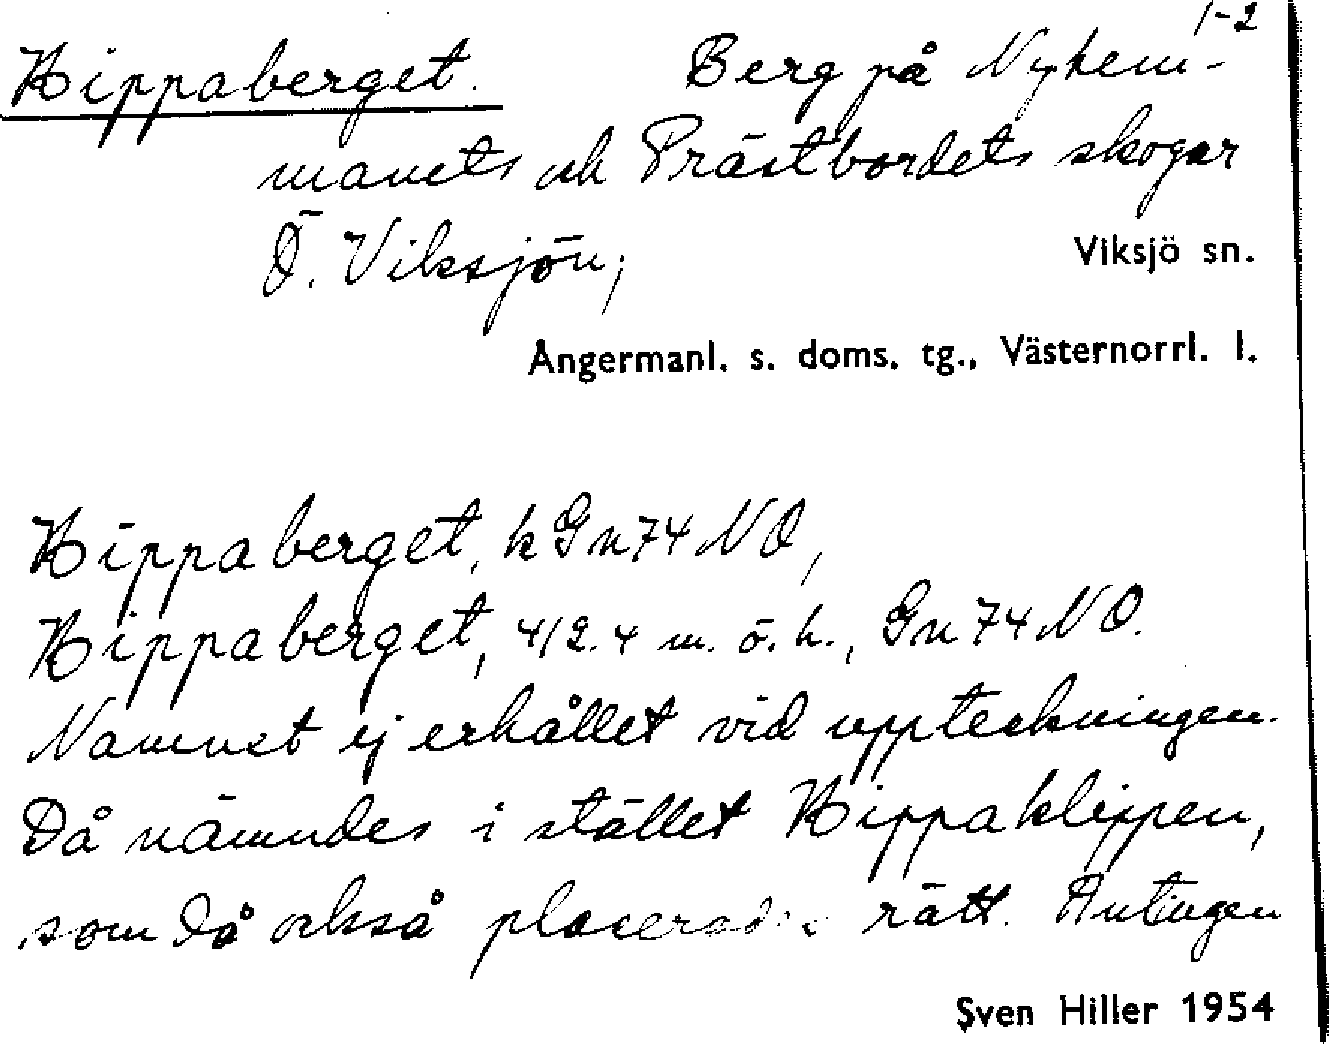 1-2
Kippaberget. Berg på Nyhem-
manets och Prästbordets skogar
Ö. Viksjön;
Viksjö sn.
Ångermanl. s. doms. tg., Västernorrl. l.
Kippaberget, k Gn74NO,
Kippaberget, 412.4 m. ö. h., Gn74NO.
Namnet ej erhållet vid uppteckningen.
Då nämndes i stället Kippaklippen,
som då också placerades rätt. Antingen
Sven Hiller 1954